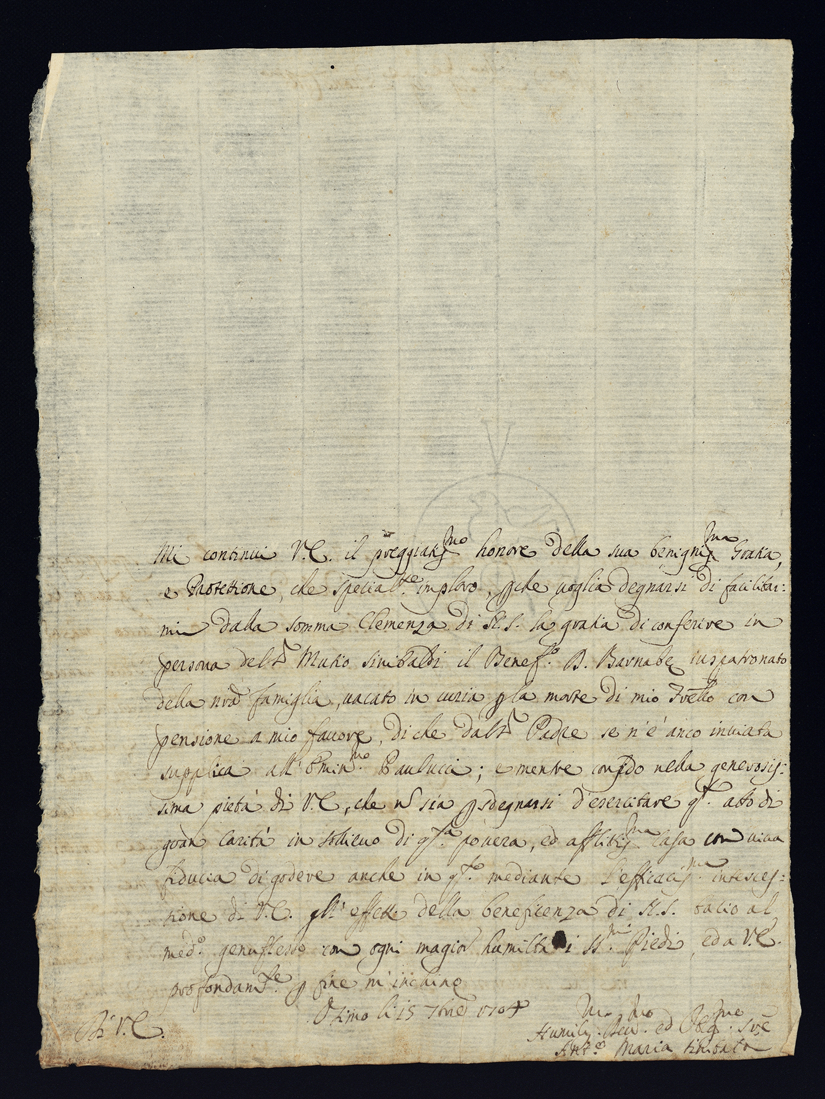 Mi continui V.E. il preggiatis.mo honore della sua benignis.ma Grazia,
e Protettione, che special.te imploro, p che voglia degnarsi di facilitar:
mi dalla somma Clemenza di N.S. la grazia di conferire in
persona del Muzio Sinibaldi il Benef.o B. Barnabe iuspatronato
della nra famiglia, vacato in curia p la morte di mio Frello con
pensione a mio favore, di che dal Padre se n'è anco inviata
supplica all' Emin.mo Paulucci; e mentre confido nella generosis:
sima pietà di V.E., che n sia p sdegnarsi d'esercitare q.o atto di
gran carità in sollievo di q.a povera, ed afflitis.ma Casa con viva
fiducia di godere anche in q.o mediante l'efficacis.ma interces:
sione di V.E. gli effetti della beneficenza di N.S. bacio al
med.o genuflesso con ogni magior humiltà i SS.mi Piedi, ed a V.E.
profondam.te p fine m'inchino
Osimo li 15 1704
Di V.E.
Humilis.mo Dev.mo ed Obblig.mo Sre
Ant.o Maria